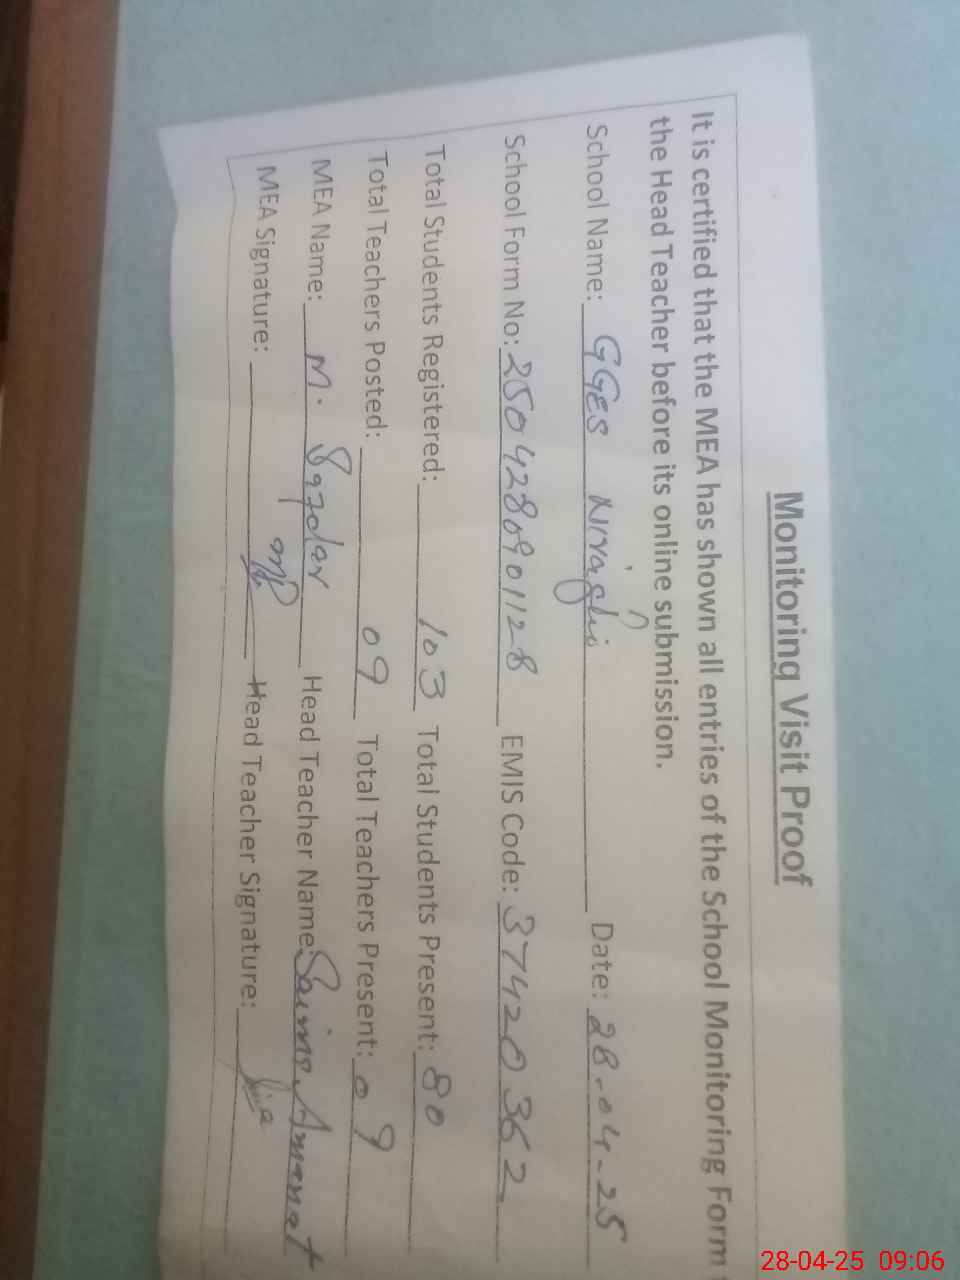 Monitoring Visit Proof
It is certified that the MEA has shown all entries of the School Monitoring Form
the Head Teacher before its online submission.
School Name: GGES Niraghi Date: 28-04-25
School Form No: 250428090112-8 EMIS Code: 37420362
Total Students Registered: 103 Total Students Present: 80
Total Teachers Posted: 09 Total Teachers Present: 09
MEA Name: M. Safdar Head Teacher Name: Saima Amanat
MEA Signature: Head Teacher Signature:
28-04-25 09:06